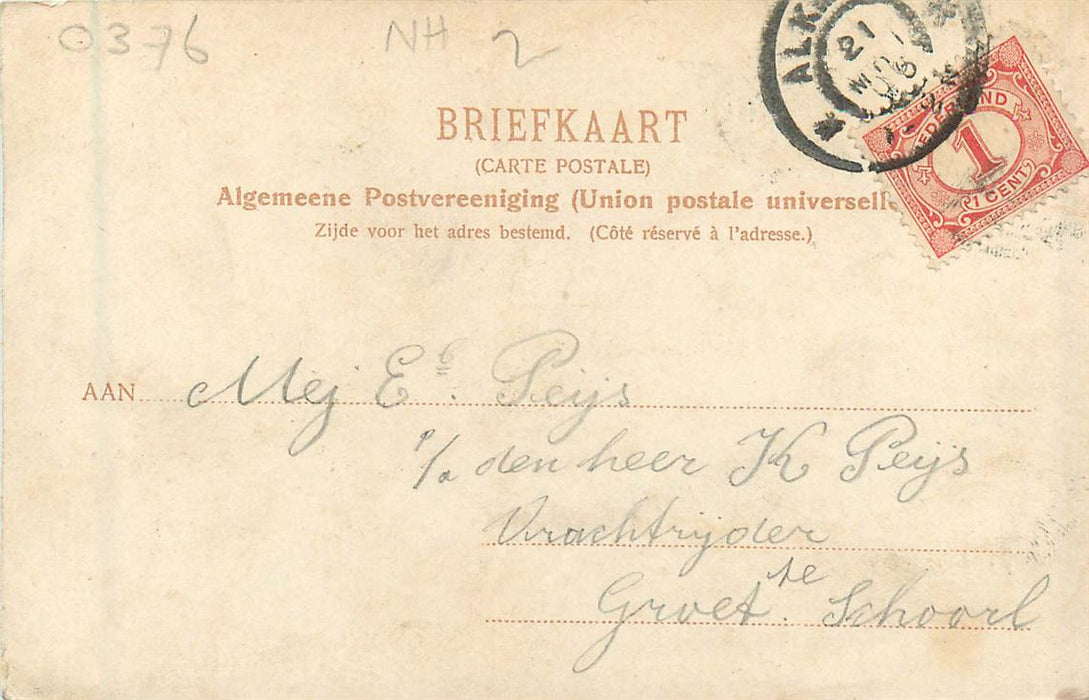 0376 NH 2
ALK
21
BRIEFKAART
(CARTE POSTALE)
Algemeene Postvereeniging (Union postale universell
Zijde voor het adres bestemd. (Côté réservé à l'adresse.)
1
1 CENT
AAN Mej Eb. Peijs
p/a den heer K Peijs
Vrachtrijder
Groet te Schoorl